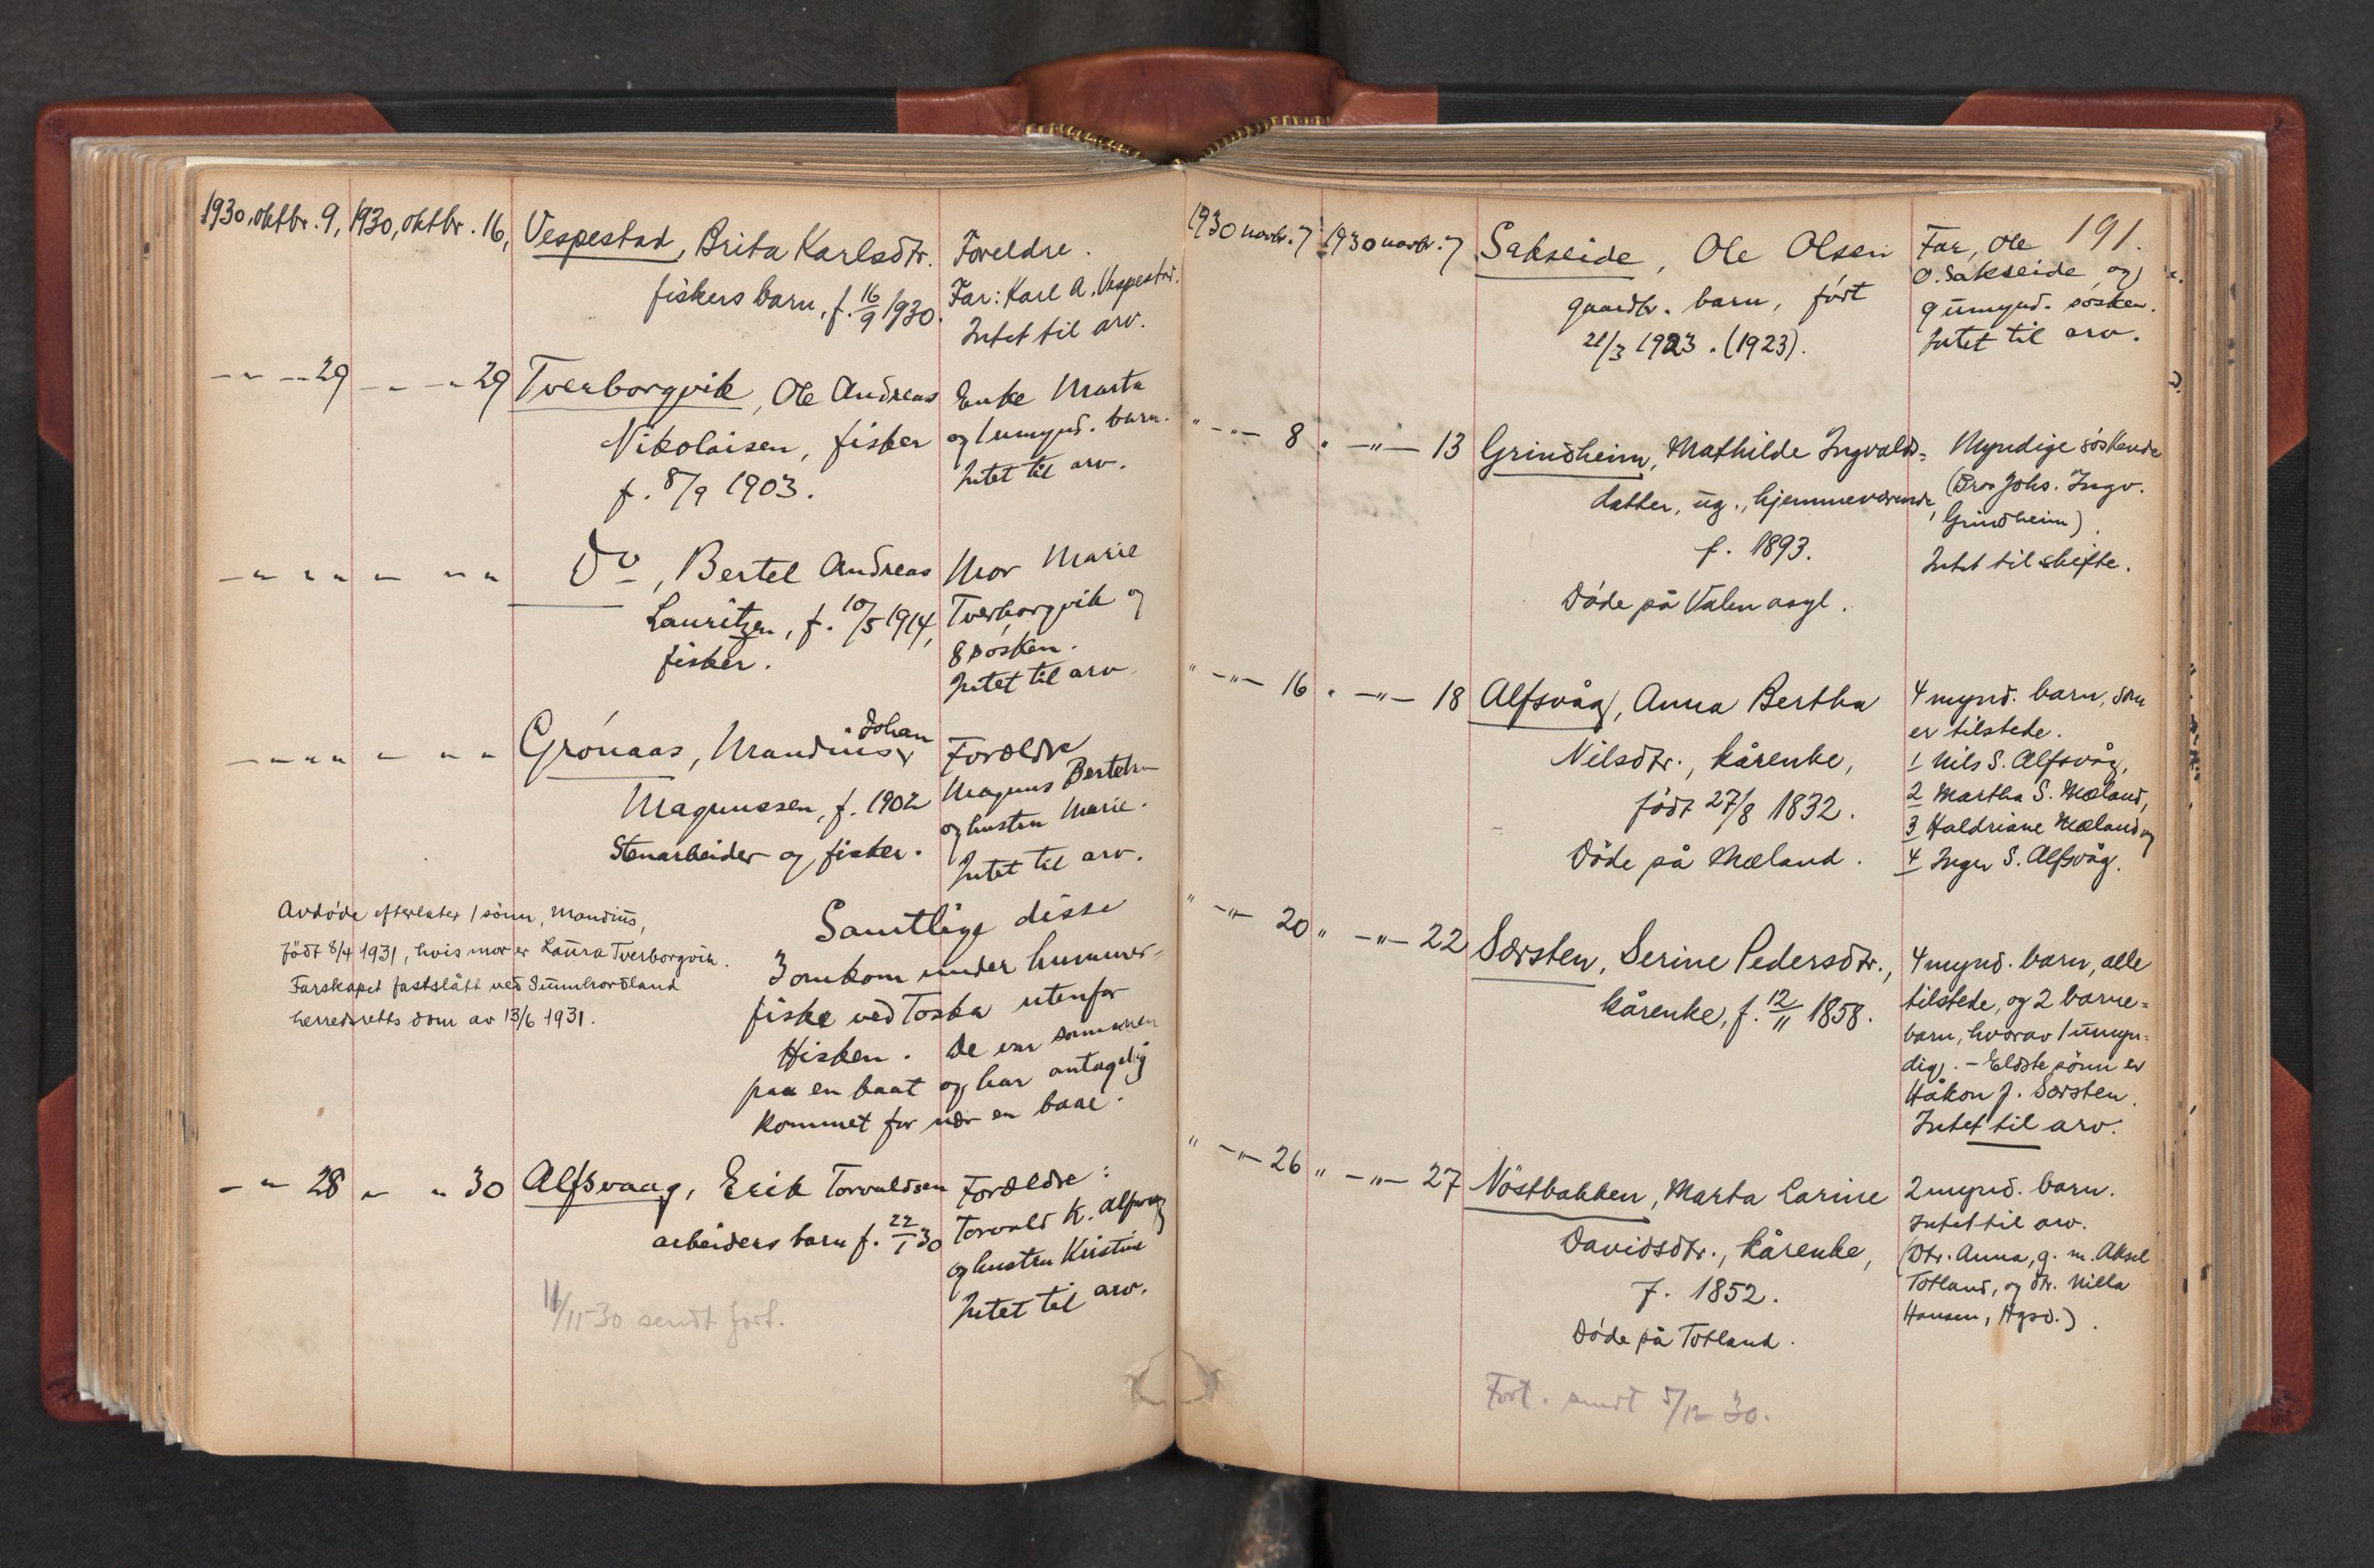 1930, oktbr. 9, 1930, oktbr. 16, Vespestad, Brita Karlsdtr. Foreldre.
fiskers barn, f. 16/9 1930. Far: Karl A. Vespestad.
Intet til arv.
— „ — „ 29 — „ — „ 29 Tverborgvik, Ole Andreas Enke Marta
Nikolaisen, fisker og 1 umynd. barn.
f. 8/9 1903. Intet til arv.
— „ „ „ — „ „ Do, Bertel Andreas Mor Marie
Lauritzen, f. 10/5 1914, Tverborgvik og
fisker. 8 søsken.
Intet til arv.
— „ „ „ — „ „ Grönaas, Mandius Johan Forældre
Magnussen, f. 1902 Magnus Bertels
Stenarbeider og fisker. og hustru Marie.
Intet til arv.
Avdöde efterlater 1 sönn, Mandius,
födt 8/4 1931, hvis mor er Laura Tverborgvik.
Farskapet fastslått ved Sunnhordland
herredsretts dom av 13/6 1931.
Samtlige disse
3 omkom under hummer=
fiske ved Toska utenfor
Hisken. De var sammen
paa en baat og har antagelig
kommet for nær en baae.
— „ 28 „ „ 30 Alfsvaag, Erik Torvaldsen Forældre:
arbeiders barn f. 22/1 30 Torvald K. Alfsvaag
og hustru Kristine
Intet til arv.
11/11-30 sendt fort.
191.
1930 novbr. 7 1930 novbr. 7 Sakseide, Ole Olsen Far, Ole
gaardbr. barn, født O. Sakseide og
21/3 1923. (1923). 9 umynd. søsken.
Intet til arv.
" — „ — 8 " — „ — 13 Grindheim, Mathilde Ingvalds= Myndige søskende
datter, ug., hjemmeværende, (Bror Johs. Ingv.
Grindheim).
f. 1893. Intet til skifte.
Döde på Valen asyl.
" — „ — 16 " — „ — 18 Alfsvåg, Anna Bertha 4 mynd. barn, som
er tilstede.
Nilsdtr., kårenke, 1 Nils S. Alfsvåg,
födt 27/8 1832. 2 Martha S. Mæland,
3 Haldriane Mæland og
Döde på Mæland. 4 Inger S. Alfsvåg.
" — „ — 20 " — „ — 22 Særsten, Serine Pedersdtr., 4 mynd. barn, alle
kårenke, f. 12/11 1858. tilstede, og 2 barne=
barn, hvorav 1 umyn=
dig. – Eldste sönn er
Håkon J. Særsten.
Intet til arv.
" — „ — 26 " — „ — 27 Nöstbakken, Marta Larine 2 mynd. barn.
Intet til arv.
Davidsdtr., kårenke, (Dtr. Anna, g. m. Aksel
f. 1852. Totland, og dtr. Nilla
Hansen, Hgsd.).
Döde på Totland.
Fort. sendt 5/12 30.